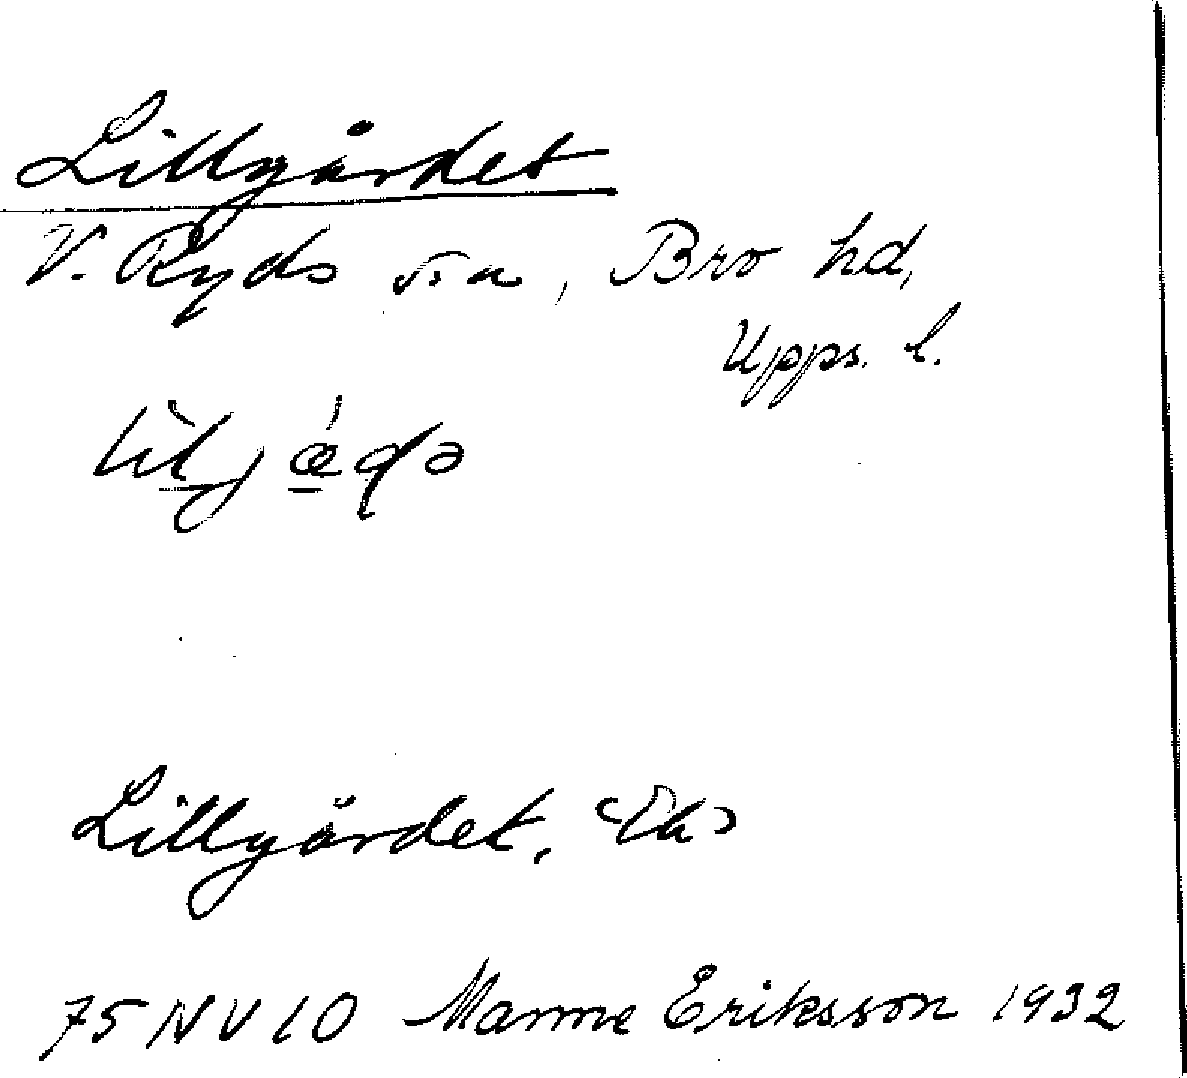 Lillgärdet
V. Ryds sn, Bro hd,
Upps. l.
Lillgärdet.
75 NV 10 Manne Eriksson 1932